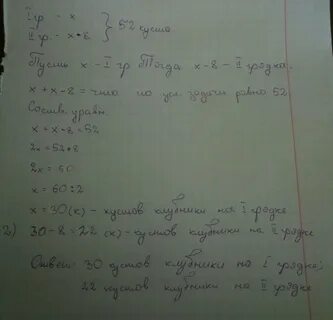 I гр. - x
II гр. - x-8 } 52 куста
Пусть x - I гр Тогда x-8 - II грядка.
x + x - 8 = что по усл. задачи равно 52
Состав. уравн.
x + x - 8 = 52
2x = 52+8
2x = 60
x = 60:2
x = 30 (к) - кустов клубники на I грядке
2) 30 - 8 = 22 (к) - кустов клубники на II грядке
Ответ: 30 кустов клубники на I грядке;
22 кустов клубники на II грядке